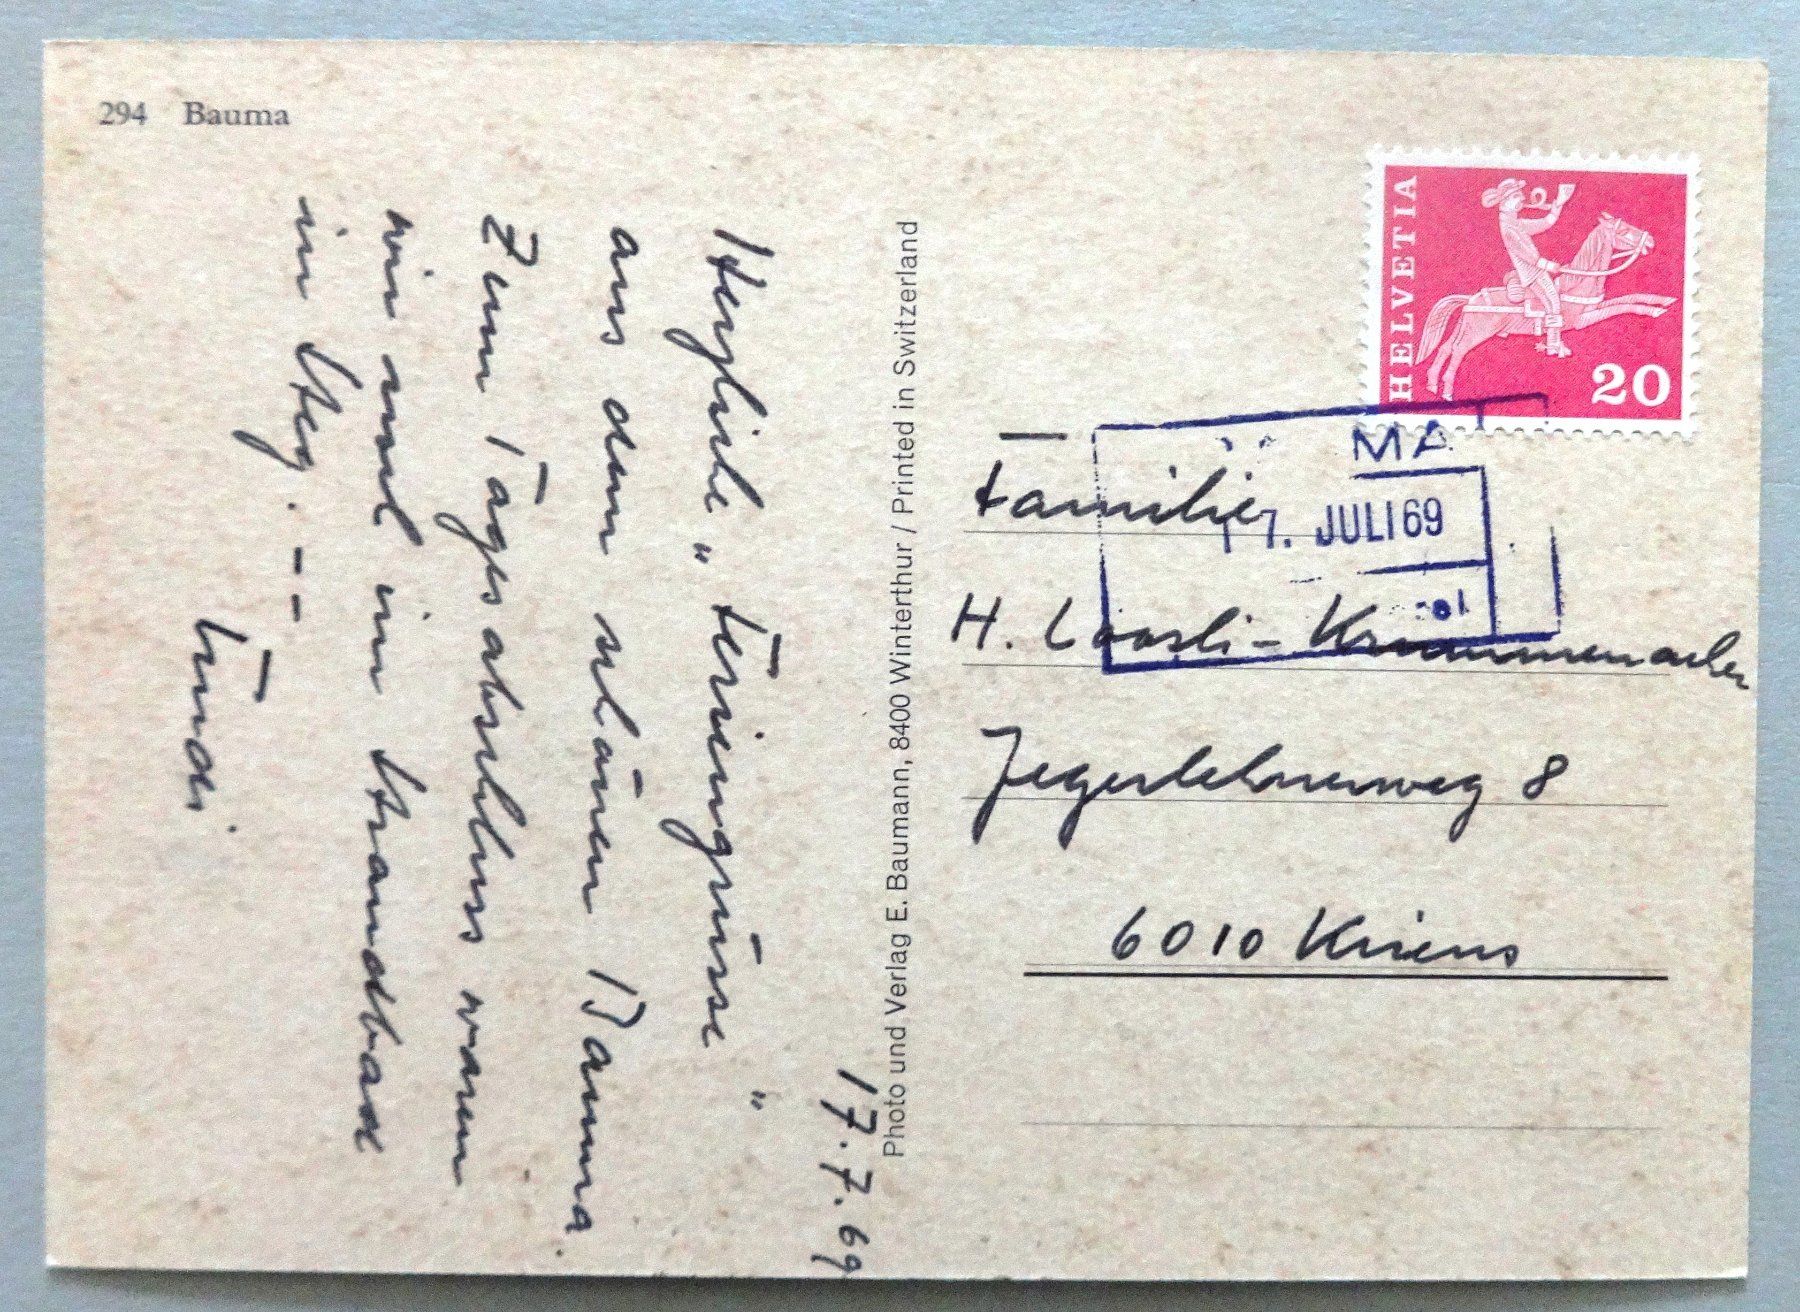 294 Bauma
17.7.69
Herzliche „Feriengrüsse"
aus dem schönen Bauma.
Zum Tagesabschluss waren
wir noch im Strandbad
in Steg. - -
Trudi
Photo und Verlag E. Baumann, 8400 Winterthur / Printed in Switzerland
HELVETIA
20
MA
17. JULI 69
Familie
H. Loosli-Krummenacher
Jegerlehnerweg 8
6010 Kriens